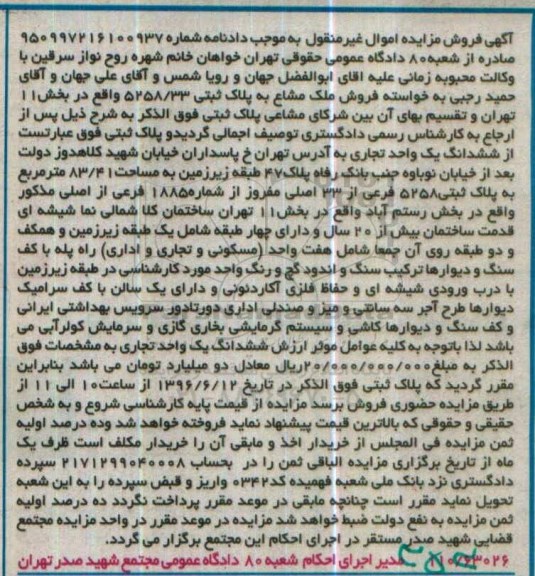 آگهی فروش مزایده اموال غیرمنقول به موجب دادنامه شماره ۹۵۰۹۹۷۲۱۶۱۰۰۹۳۷
صادره از شعبه ۸۰ دادگاه عمومی حقوقی تهران خواهان خانم شهره روح نواز سرقین با
وکالت محبوبه زمانی علیه اقای ابوالفضل جهان و رویا شمس و آقای علی جهان و آقای
حمید رجبی به خواسته فروش ملک مشاع به پلاک ثبتی ۵۲۵۸/۳۳ واقع در بخش۱۱
تهران و تقسیم بهای آن بین شرکای مشاعی پلاک ثبتی فوق الذکر به شرح ذیل پس از
ارجاع به کارشناس رسمی دادگستری توصیف اجمالی گردیدو پلاک ثبتی فوق عبارتست
از ششدانگ یک واحد تجاری به آدرس تهران خ پاسداران خیابان شهید کلاهدوز دولت
بعد از خیابان نوباوه جنب بانک رفاه پلاک۴۷ طبقه زیرزمین به مساحت ۸۳/۴۱ مترمربع
به پلاک ثبتی۵۲۵۸ فرعی از ۳۳ اصلی مفروز از شماره۱۸۸۵ فرعی از اصلی مذکور
واقع در بخش رستم آباد واقع در بخش۱۱ تهران ساختمان کلا شمالی نما شیشه ای
قدمت ساختمان بیش از ۲۰ سال و دارای چهار طبقه شامل یک طبقه زیرزمین و همکف
و دو طبقه روی آن جمعا شامل هفت واحد (مسکونی و تجاری و اداری) راه پله با کف
سنگ و دیوارها ترکیب سنگ و اندود گچ و رنگ واحد مورد کارشناسی در طبقه زیرزمین
با درب ورودی شیشه ای و حفاظ فلزی آکاردئونی و دارای یک سالن با کف سرامیک
دیوارها طرح آجر سه سانتی و میز و صندلی اداری دورتادور سرویس بهداشتی ایرانی
و کف سنگ و دیوارها کاشی و سیستم گرمایشی بخاری گازی و سرمایش کولرآبی می
باشد لذا باتوجه به کلیه عوامل موثر ارزش ششدانگ یک واحد تجاری به مشخصات فوق
الذکر به مبلغ۲۰/۰۰۰/۰۰۰/۰۰۰ریال معادل دو میلیارد تومان می باشد بنابراین
مقرر گردید که پلاک ثبتی فوق الذکر در تاریخ ۱۳۹۶/۶/۱۲ از ساعت۱۰ الی ۱۱ از
طریق مزایده حضوری فروش برسد مزایده از قیمت پایه کارشناسی شروع و به شخص
حقیقی و حقوقی که بالاترین قیمت پیشنهاد نماید فروخته خواهد شد وده درصد اولیه
ثمن مزایده فی المجلس از خریدار اخذ و مابقی آن را خریدار مکلف است ظرف یک
ماه از تاریخ برگزاری مزایده الباقی ثمن را در بحساب ۲۱۷۱۲۹۹۰۴۰۰۰۸ سپرده
دادگستری نزد بانک ملی شعبه فهمیده کد۰۳۴۲ واریز و قبض سپرده را به این شعبه
تحویل نماید مقرر است چنانچه مابقی در موعد مقرر پرداخت نگردد ده درصد اولیه
ثمن مزایده به نفع دولت ضبط خواهد شد مزایده در موعد مقرر در واحد مزایده مجتمع
قضایی شهید صدر مستقر در اجرای احکام این مجتمع برگزار می گردد.
مدیر اجرای احکام شعبه ۸۰ دادگاه عمومی مجتمع شهید صدر تهران